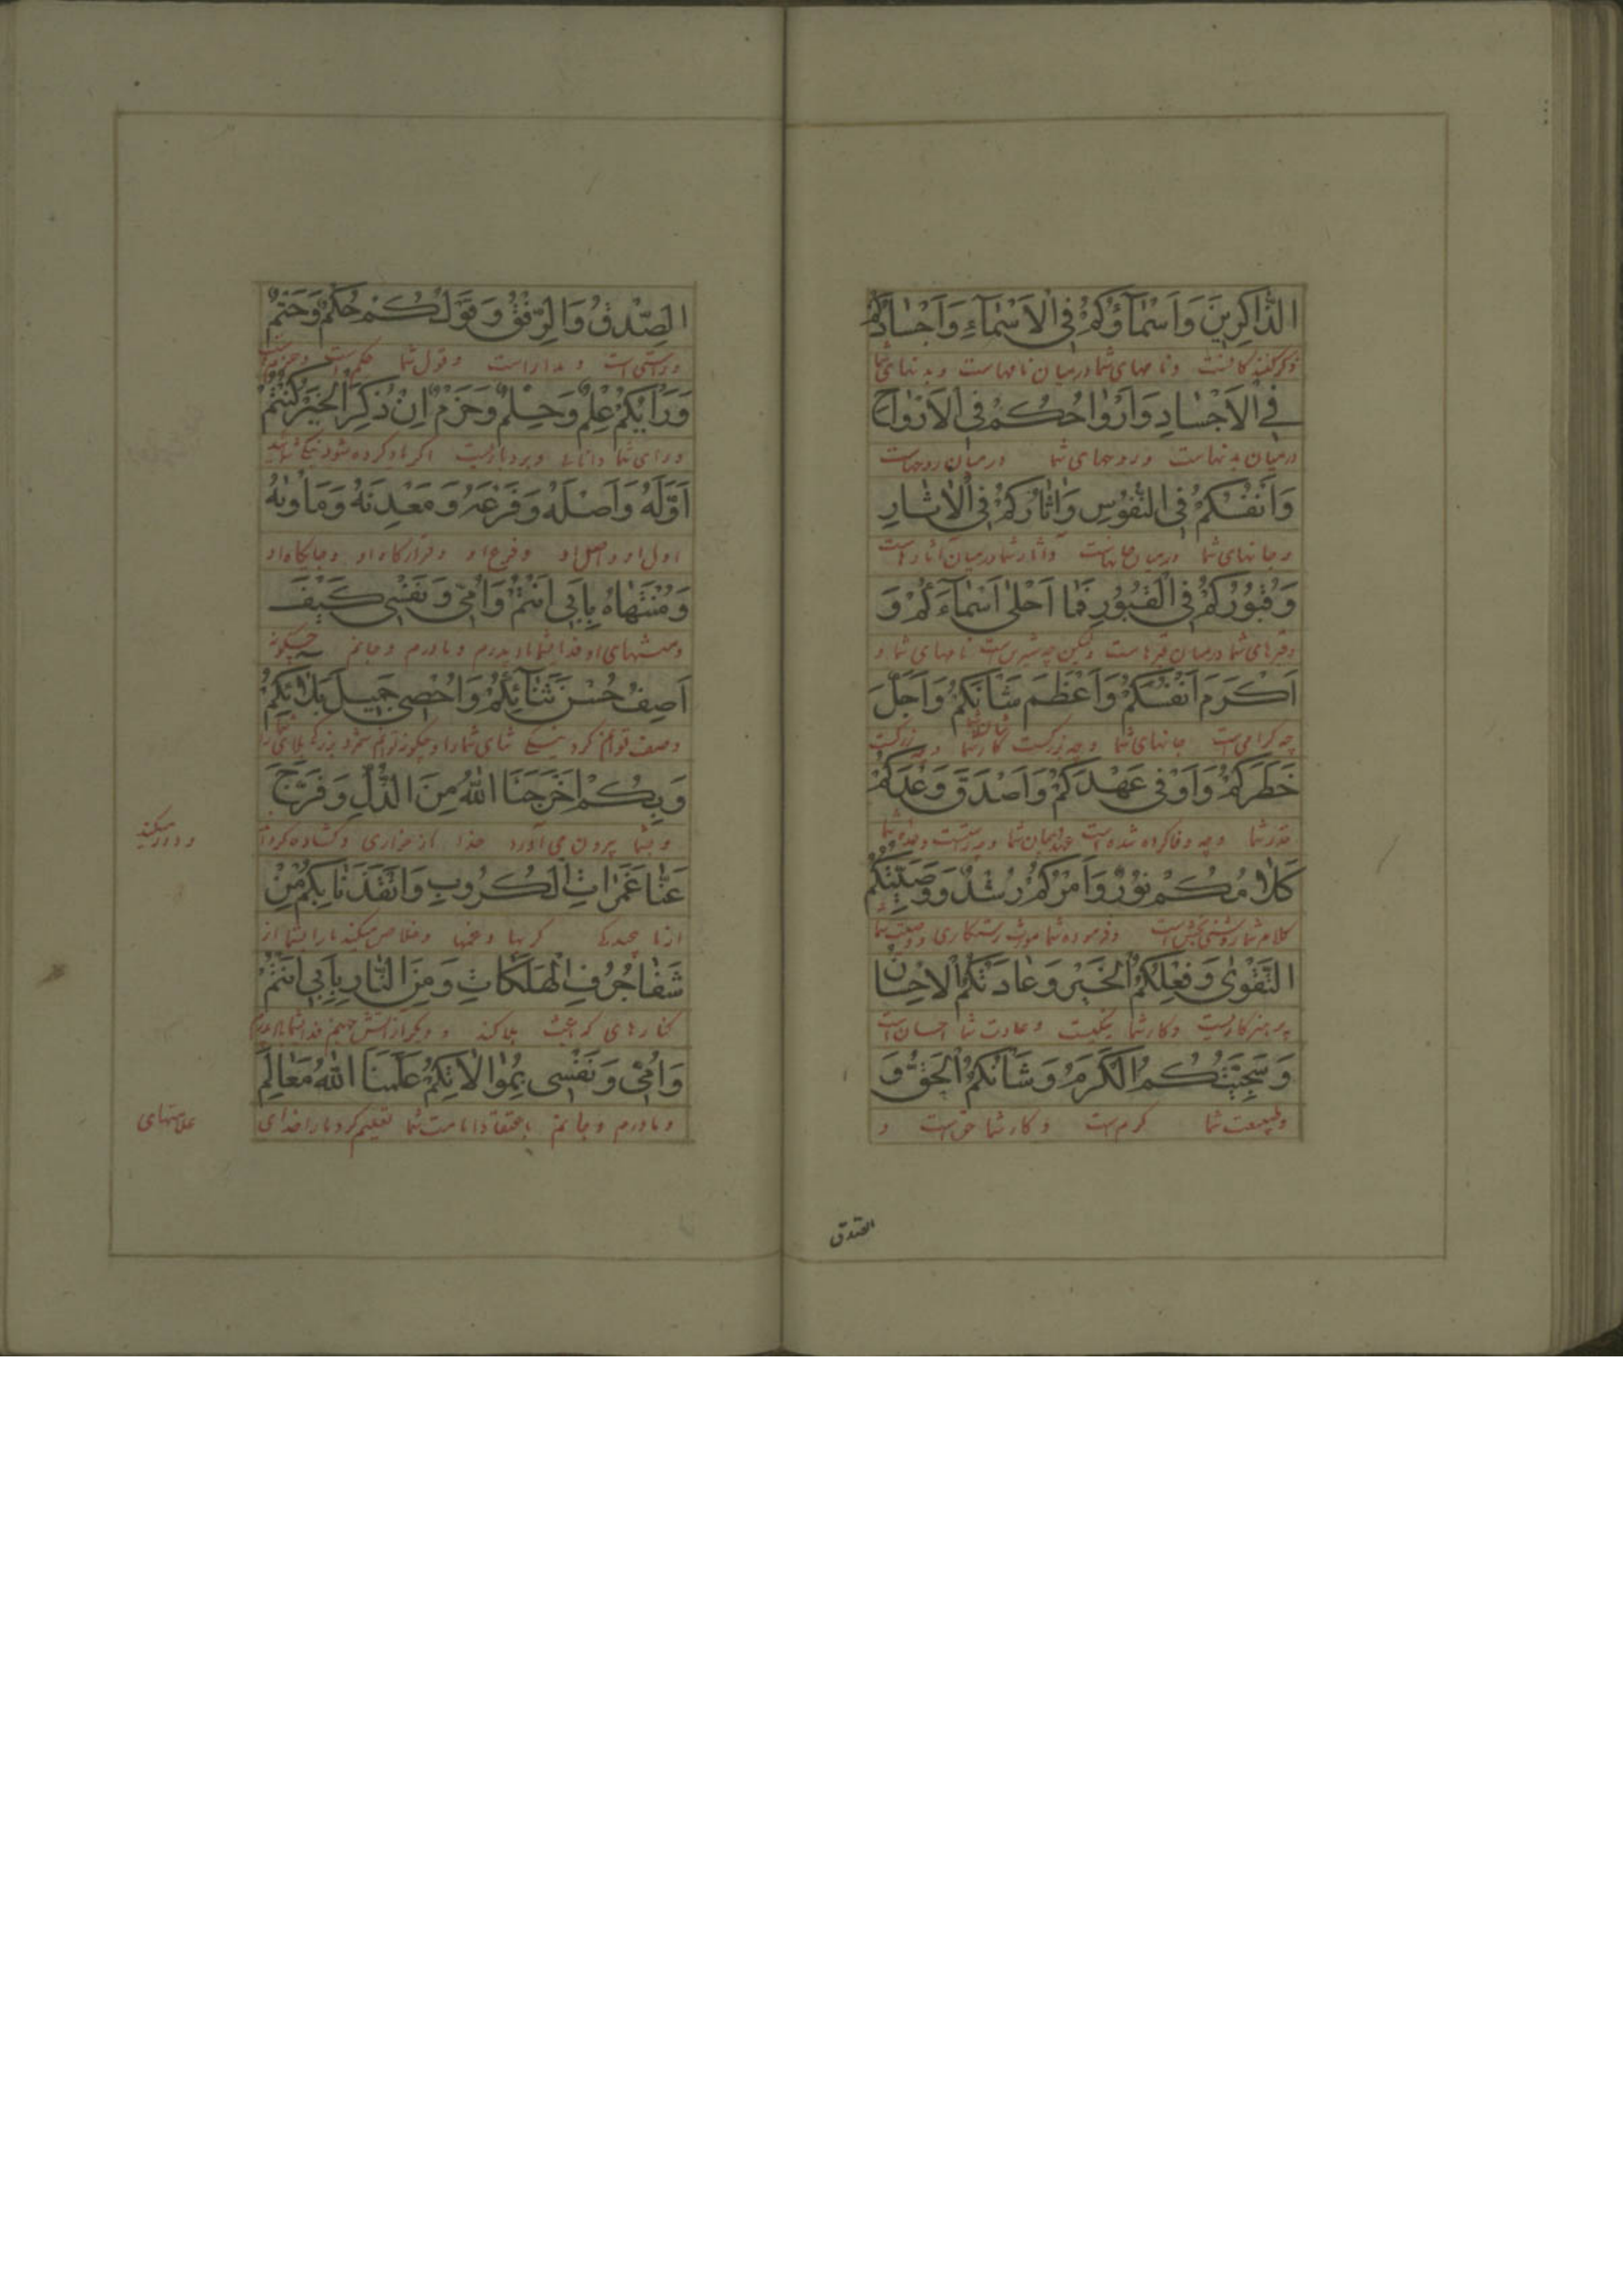 الذَّاكِرِينَ وَاَسْمَآؤُكُمْ فِى الْاَسْمَآءِ وَاَجْسَادُكُمْ
ذکرکنندکانست ونامهای شما درمیان نامهاست وبدنهای شما
فِى الْاَجْسَادِ وَاَرْوٰاحُكُمْ فِى الْاَرْوٰاحِ
درمیان بدنهاست وروحهای شما درمیان روحهاست
وَاَنْفُسُكُمْ فِى النُّفُوسِ وَاٰثَارُكُمْ فِى الْاٰثَارِ
وجانهای شما درمیان جانهاست وآثار شما درمیان آثاراست
وَقُبُورُكُمْ فِى الْقُبُورِ فَمَا اَحْلٰى اَسْمَآءَكُمْ وَ
وقبرهای شما درمیان قبرهاست ولیکن چه شیرین است نامهای شما و
اَكْرَمَ اَنْفُسَكُمْ وَاَعْظَمَ شَاْنَكُمْ وَاَجَلَّ
چه کرامی است جانهای شما وچه بزرکست شان شما وچه بزرکست
خَطَرَكُمْ وَاَوْفٰى عَهْدَكُمْ وَاَصْدَقَ وَعْدَكُمْ
قدر شما وچه وفاکرده شده است
كَلَامُكُمْ نُورٌ وَاَمْرُكُمْ رُشْدٌ وَوَصِيَّتُكُمُ
کلام شما روشنی بخش است وفرموده شما موجب رستکاری ووصیت شما
التَّقْوٰى وَفِعْلُكُمُ الْخَيْرُ وَعَادَتُكُمُ الْاِحْسَانُ
پرهیزکاریست وکار شما نیکیست وعادت شما احسان است
وَسَجِيَّتُكُمُ الْكَرَمُ وَشَاْنُكُمُ الْحَقُّ وَ
وطبیعت شما کرم است وکار شما حق است و
الصّدق
الصِّدْقُ وَالرِّفْقُ وَقَوْلُكُمْ حُكْمٌ وَحَتْمٌ
وراستی است ومداراست وقول شما حکم است
وَرَاْيُكُمْ عِلْمٌ وَحِلْمٌ وَحَزْمٌ اِنْ ذُكِرَ الْخَيْرُ كُنْتُمْ
ورای شما دانائی وبردباریست اکر یادکرده شود نیکی شمائید
اَوَّلَهُ وَاَصْلَهُ وَفَرْعَهُ وَمَعْدِنَهُ وَمَاْوٰيهُ
اول او واصل او وفرع او وقرارکاه او وجایکاه او
وَمُنْتَهَاهُ بِاَبِى اَنْتُمْ وَاُمِّى وَنَفْسِى كَيْفَ
ومنتهای او فدای شما باد پدرم ومادرم وجانم چکونه
اَصِفُ حُسْنَ ثَنَآئِكُمْ وَاُحْصِى جَمِيلَ بَلَائِكُمْ
وصف توانم کرد نیکی ثنای شما را وچکونه توانم شمرد
وَبِكُمْ اَخْرَجَنَا اللّٰهُ مِنَ الذُّلِّ وَفَرَّجَ
وبشما بیرون می آورد خدا از خواری وکشاده کرد
ودور میکند
عَنَّا غَمَرَاتِ الْكُرُوبِ وَاَنْقَذَنَا بِكُمْ مِنْ
از ما کربها وغمها وخلاص میکند مارا بشما از
شَفَا جُرُفِ الْهَلَكَاتِ وَمِنَ النَّارِ بِاَبِى اَنْتُمْ
کنارهای ودیکر از آتش جهنم
وَاُمِّى وَنَفْسِى بِمُوَالَاتِكُمْ عَلَّمَنَا اللّٰهُ مَعَالِمَ
ومادرم وجانم باعتقاد امامت شما تعلیم کرد مارا خدای
علامتهای